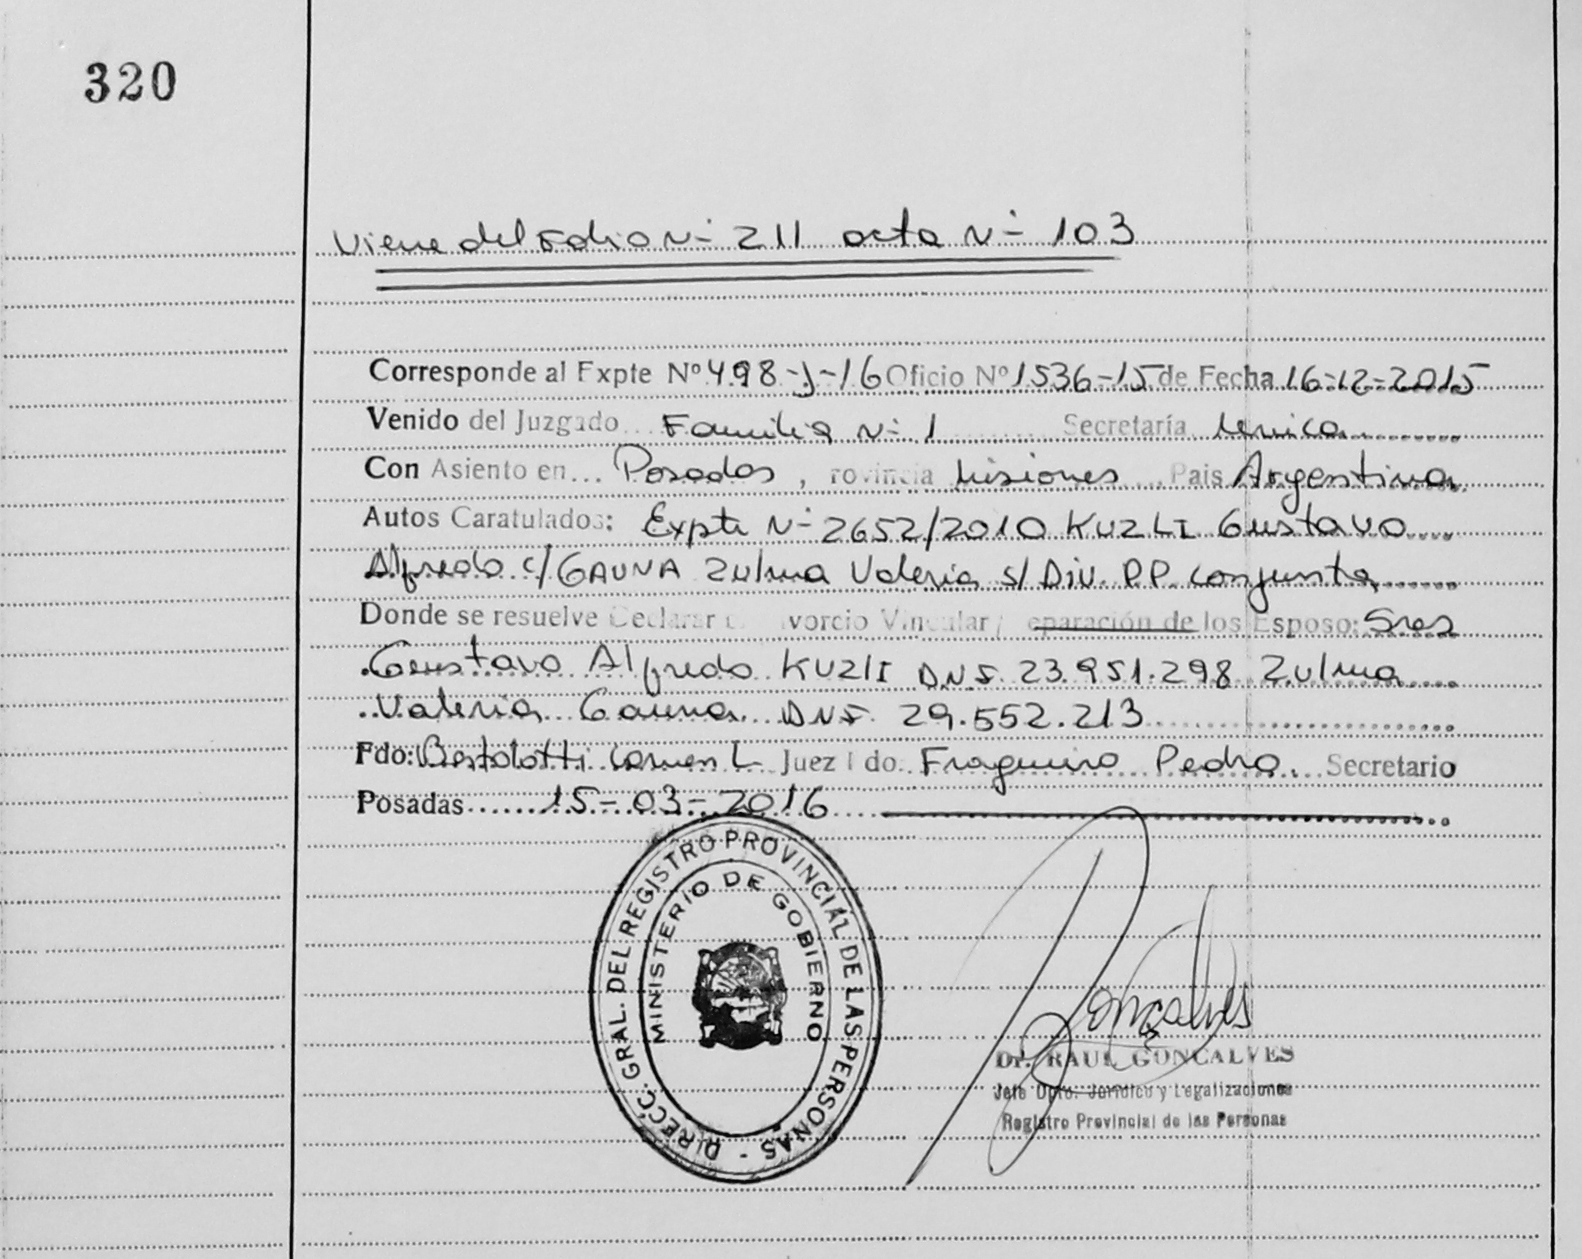 320
Viene del Folio N- 211 acta N- 103
Corresponde al Expte Nº 498-J-16 Oficio Nº 1536-15 de Fecha 16-12-2015
Venido del Juzgado Familia N- 1 Secretaría Unica
Con Asiento en... Posadas, rovincia Misiones País Argentina
Autos Caratulados: Expte N- 2652/2010 KUZLI Gustavo
Alfredo c/ GAUNA Zulma Valeria s/ Div. P.P. conjunta
Donde se resuelve Declarar vorcio Vincular / eparación de los Esposo: Sres
Gustavo Alfredo KUZLI DNI. 23.951.298 Zulma
Valeria Gauna DNI. 29.552.213
Fdo: Bertolotti Carmen L Juez Fdo. Fragueiro Pedro. Secretario
Posadas 15-03-2016
DIRECC. GRAL. DEL REGISTRO PROVINCIAL DE LAS PERSONAS -
MINISTERIO DE GOBIERNO
Goncalves
Dr. RAUL GONCALVES
Jefe Dpto. Jurídico y Legalizaciones
Registro Provincial de las Personas